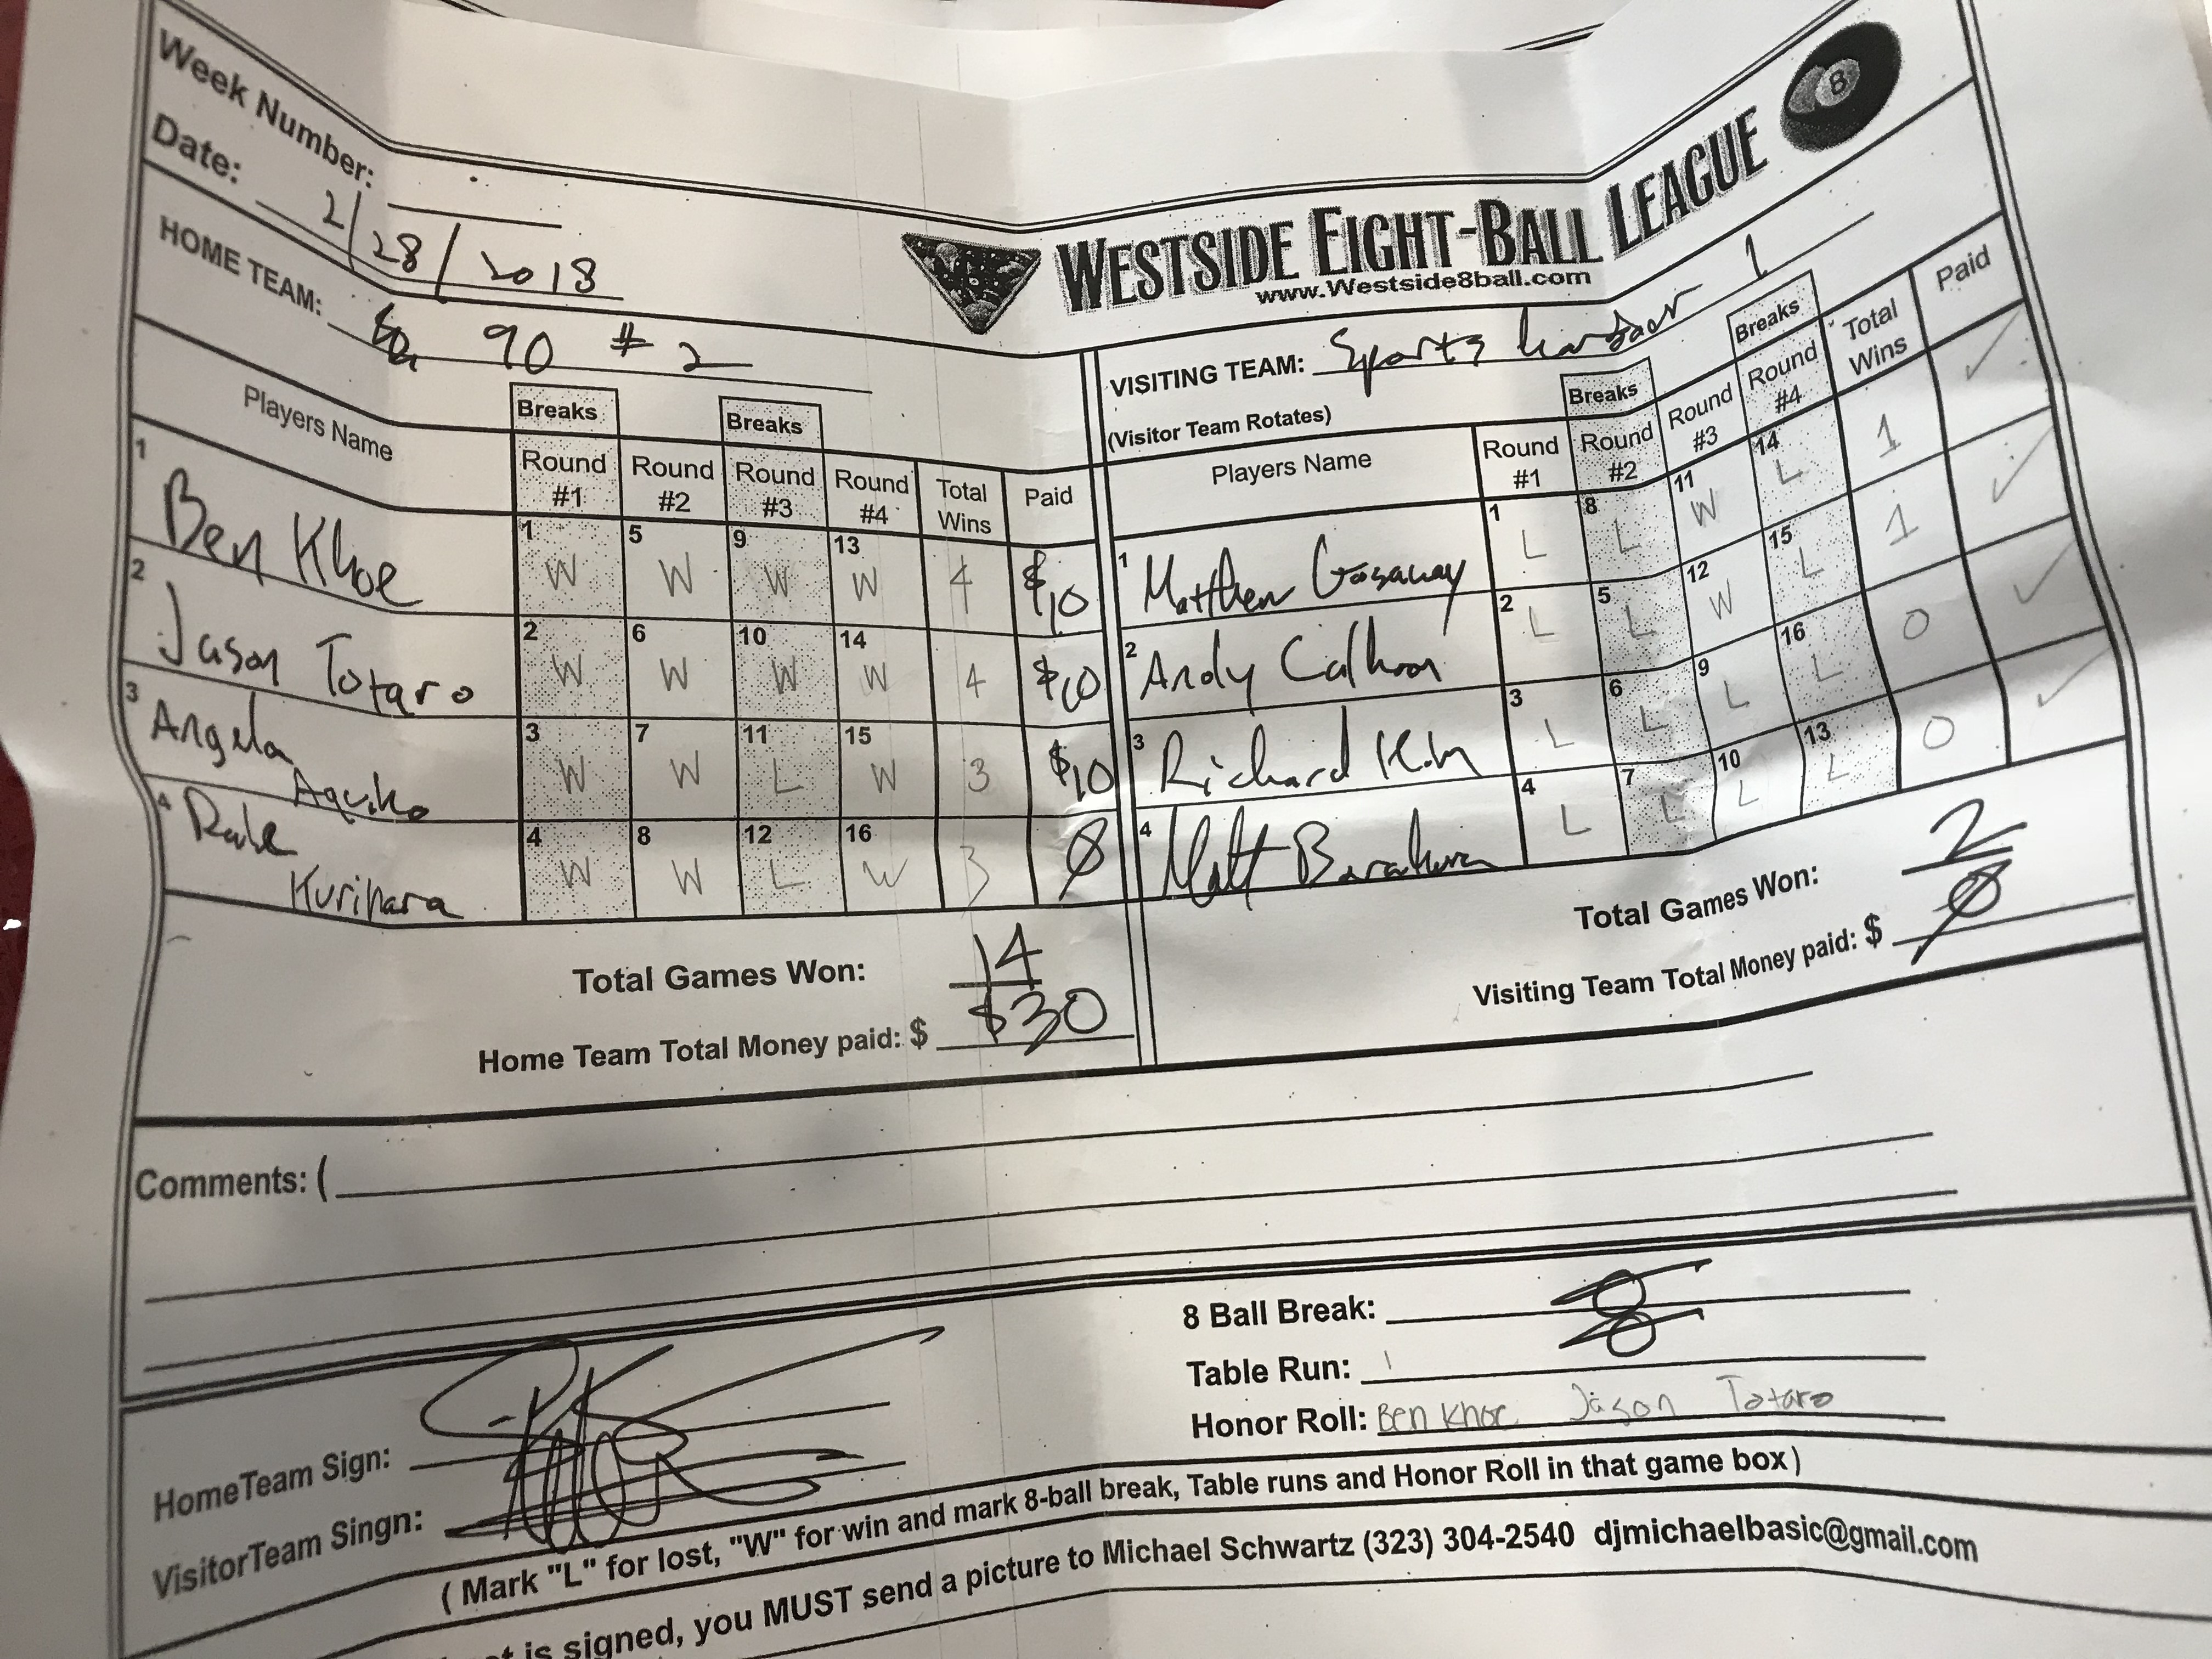 Week Number:
Date: 2/28/2018
WESTSIDE EIGHT-BALL LEAGUE
www.Westside8ball.com
8
HOME TEAM: 90 # 2
VISITING TEAM: Sports harbor 1
(Visitor Team Rotates)
Breaks Breaks
Players Name Round #1 Round #2 Round #3 Round #4 Total Wins Paid
1 Ben Khoe 1 W 5 W 9 W 13 W 4 $10
2 Jason Totaro 2 W 6 W 10 W 14 W 4 $10
3 Angela Aquiko 3 W 7 W 11 L 15 W 3 $10
4 Kurihara 4 W 8 W 12 L 16 W 3 Ø
Total Games Won: 14
Home Team Total Money paid: $ $30
Breaks Breaks
Players Name Round #1 Round #2 Round #3 Round #4 Total Wins Paid
1 Matthew Gasaway 1 L 8 L 11 W 14 L 1 ✓
2 Andy Calhoon 2 L 5 L 12 W 15 L 1 ✓
3 Richard Kim 3 L 6 L 9 L 16 L 0 ✓
4 Matt 4 L 7 L 10 L 13 L 0 ✓
Total Games Won: 2
Visiting Team Total Money paid: $ Ø
Comments: (
8 Ball Break:
Table Run:
Honor Roll: Ben Khoe Jason Totaro
HomeTeam Sign:
VisitorTeam Singn:
( Mark "L" for lost, "W" for win and mark 8-ball break, Table runs and Honor Roll in that game box)
is signed, you MUST send a picture to Michael Schwartz (323) 304-2540 djmichaelbasic@gmail.com